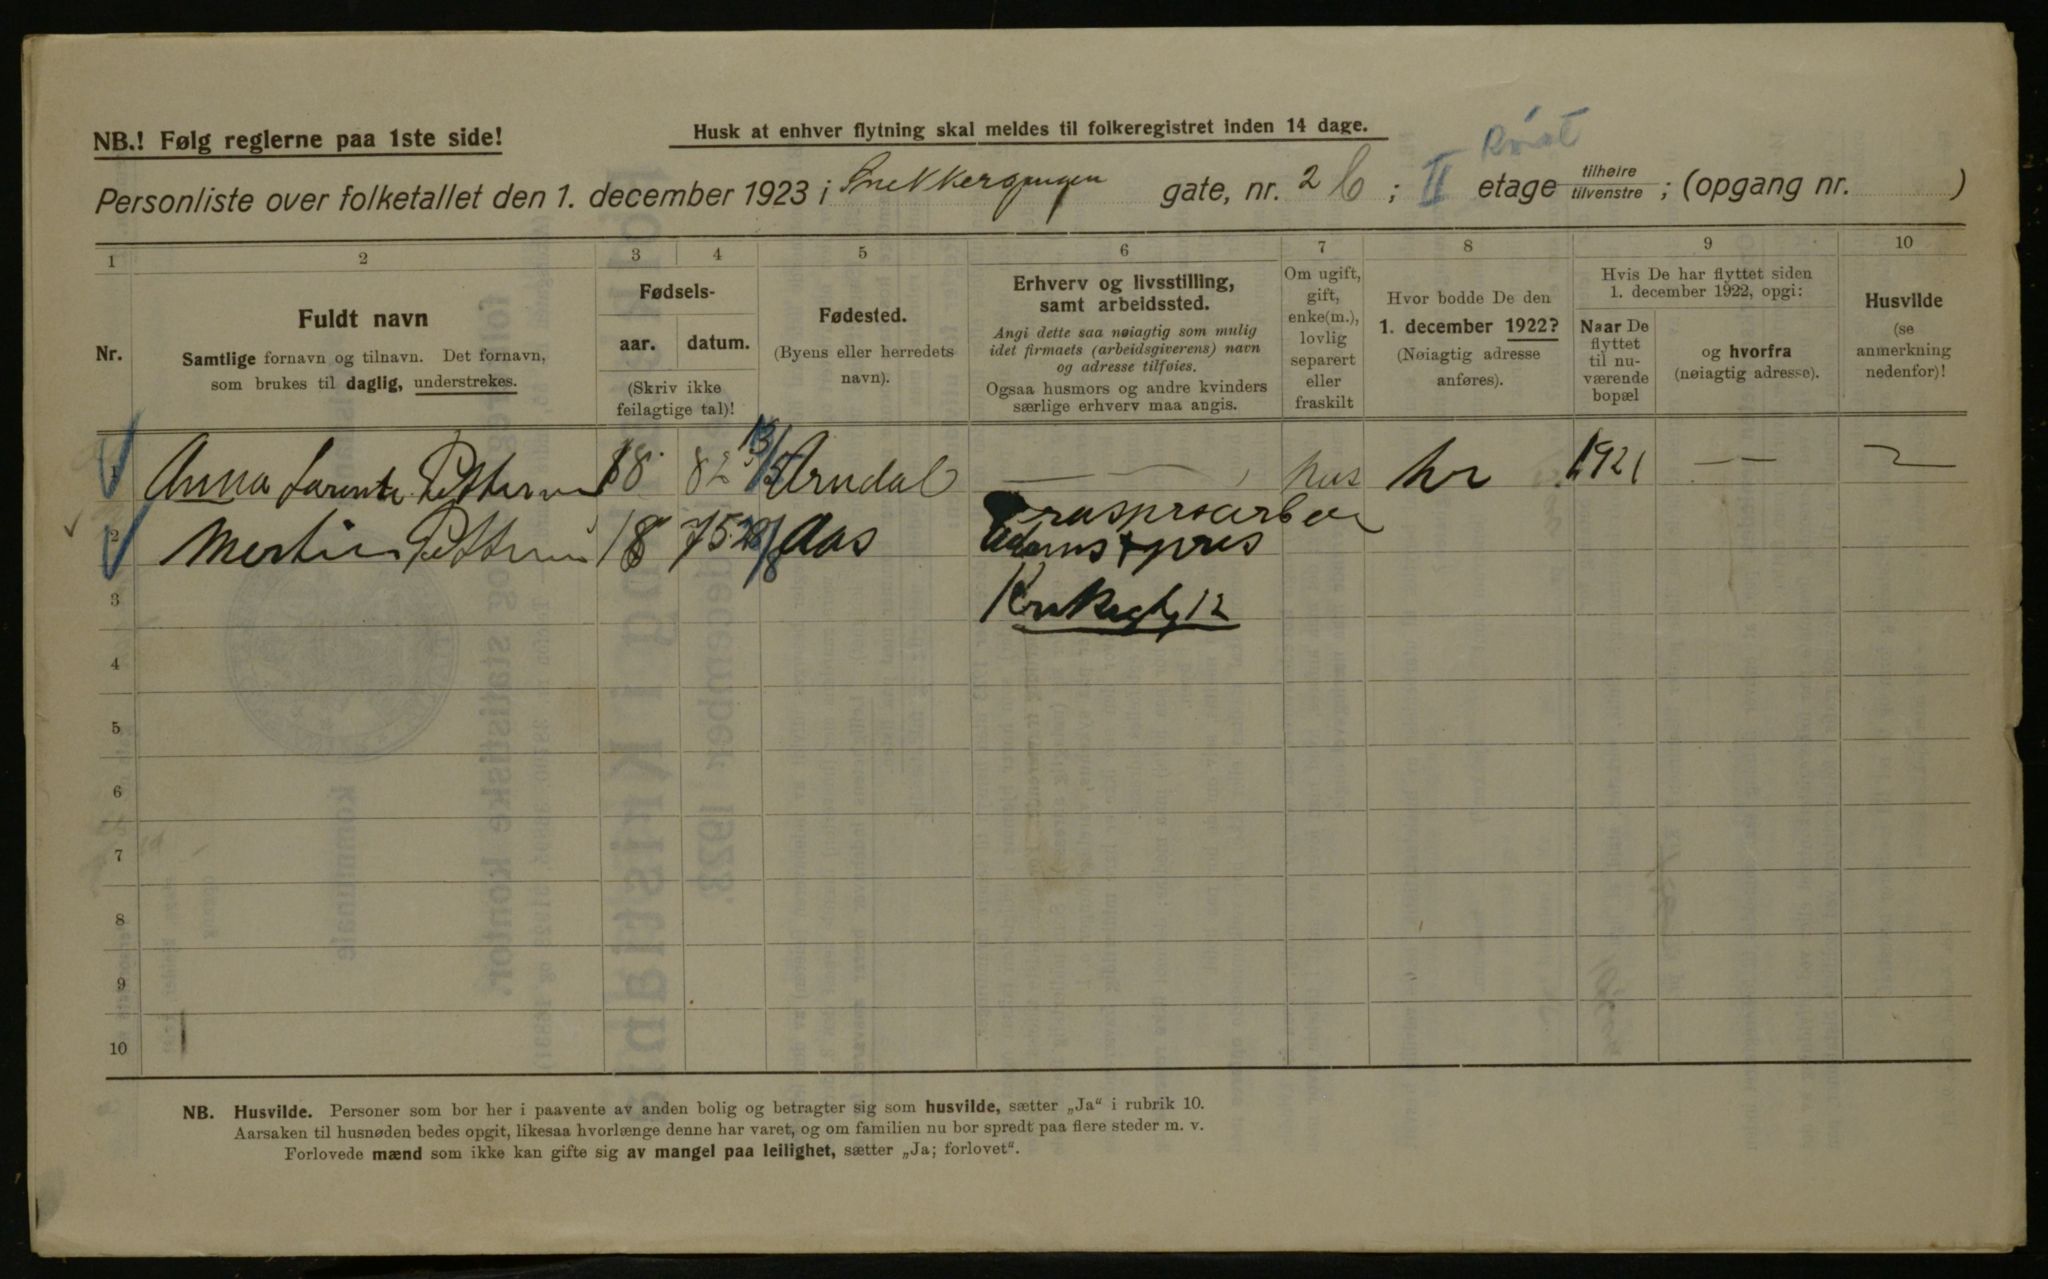 NB.! Følg reglerne paa 1ste side!
Husk at enhver flytning skal meldes til folkeregistret inden 14 dage.
Personliste over folketallet den 1. december 1923 i Snekkergangen gate, nr. 2 b ; II etage tilhøire tilvenstre ; (opgang nr. )
1 2 3 4 5 6 7 8 9 10
Nr.
Fuldt navn
Samtlige fornavn og tilnavn. Det fornavn,
som brukes til daglig, understrekes.
Fødsels-
aar. datum.
(Skriv ikke
feilagtige tal)!
Fødested.
(Byens eller herredets
navn).
Erhverv og livsstilling,
samt arbeidssted.
Angi dette saa nøiagtig som mulig
idet firmaets (arbeidsgiverens) navn
og adresse tilføies.
Ogsaa husmors og andre kvinders
særlige erhverv maa angis.
Om ugift,
gift,
enke(m.),
lovlig
separert
eller
fraskilt
Hvor bodde De den
1. december 1922?
(Nøiagtig adresse
anføres).
Hvis De har flyttet siden
1. december 1922, opgi:
Naar De
flyttet
til nu-
værende
bopæl
og hvorfra
(nøiagtig adresse).
Husvilde
(se
anmerkning
nedenfor)!
1 Anna Petersen 18 82 Arndal — hus hr 1921 — —
2 Martin Petersen 18 75 28/8 Aas
Adams + pres
12
3
4
5
6
7
8
9
10
NB. Husvilde. Personer som bor her i paavente av anden bolig og betragter sig som husvilde, sætter „Ja“ i rubrik 10.
Aarsaken til husnøden bedes opgit, likesaa hvorlænge denne har varet, og om familien nu bor spredt paa flere steder m. v.
Forlovede mænd som ikke kan gifte sig av mangel paa leilighet, sætter „Ja; forlovet“.